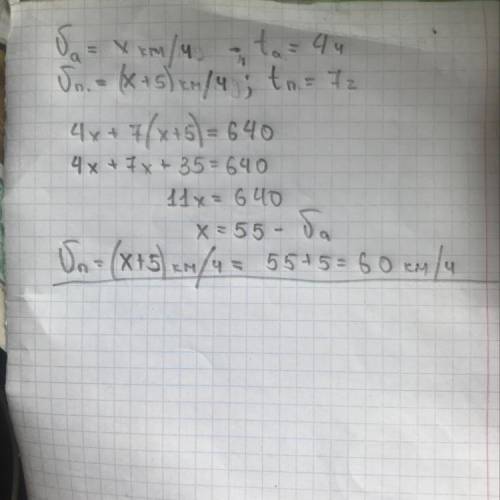 υₐ = x км/ч; tₐ = 4ч
υп. = (x+5) км/ч; tп = 7г
4x + 7(x+5) = 640
4x + 7x + 35 = 640
11x = 640
x = 55 - υₐ
υп = (x+5) км/ч = 55+5 = 60 км/ч